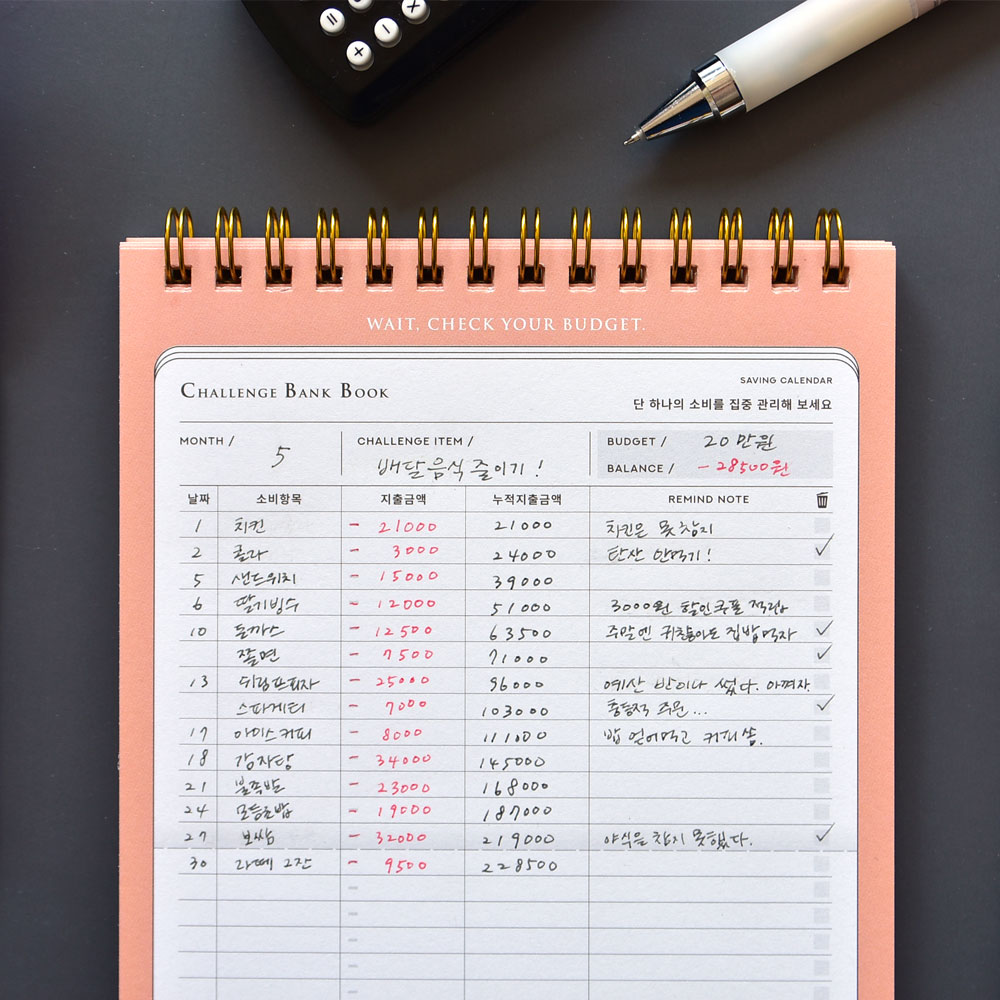 WAIT, CHECK YOUR BUDGET.
CHALLENGE BANK BOOK
SAVING CALENDAR
단 하나의 소비를 집중 관리해 보세요
MONTH / 5 CHALLENGE ITEM / 배달음식 줄이기! BUDGET / 20만원
BALANCE / -28500원
날짜 소비항목 지출금액 누적지출금액 REMIND NOTE
1 치킨 - 21000 21000 치킨은 못참지
2 콜라 - 3000 24000 탄산 안먹기!
5 샌드위치 - 15000 39000
6 딸기빙수 - 12000 51000 3000원 할인쿠폰 적용
10 돈까스 - 12500 63500 주말엔 귀찮아도 집밥먹자
쫄면 - 7500 71000
13 쉬림프피자 - 25000 96000 예산 반이나 썼다. 아껴자.
스파게티 - 7000 103000 충동적 주문...
17 아이스커피 - 8000 111000 밥 얻어먹고 커피 쏨.
18 감자탕 - 34000 145000
21 불족발 - 23000 168000
24 모듬초밥 - 19000 187000
27 보쌈 - 32000 219000 야식을 참지 못했다.
30 라떼 2잔 - 9500 228500